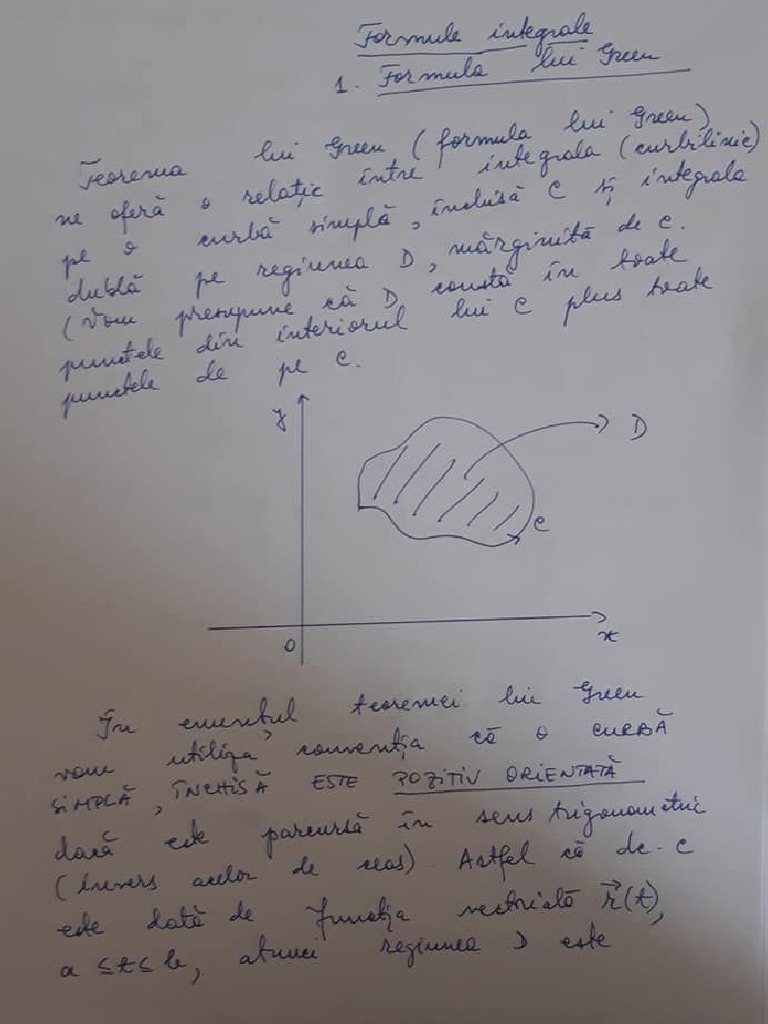 Formule integrale
1. Formula lui Green
Teorema lui Green (formula lui Green)
ne oferă o relație între integrala (curbilinie)
pe o curbă simplă, închisă C și integrala
dublă pe regiunea D, mărginită de C.
(Vom presupune că D constă în toate
punctele din interiorul lui C plus toate
punctele de pe C.
y
D
C
O
x
În enunțul teoremei lui Green
vom utiliza convenția că o CURBĂ
SIMPLĂ, ÎNCHISĂ ESTE POZITIV ORIENTATĂ
dacă este parcursă în sens trigonometric
(invers acelor de ceas). Astfel că dc. C
este dată de funcția vectorială r⃗(t),
a ≤ t ≤ b, atunci regiunea D este